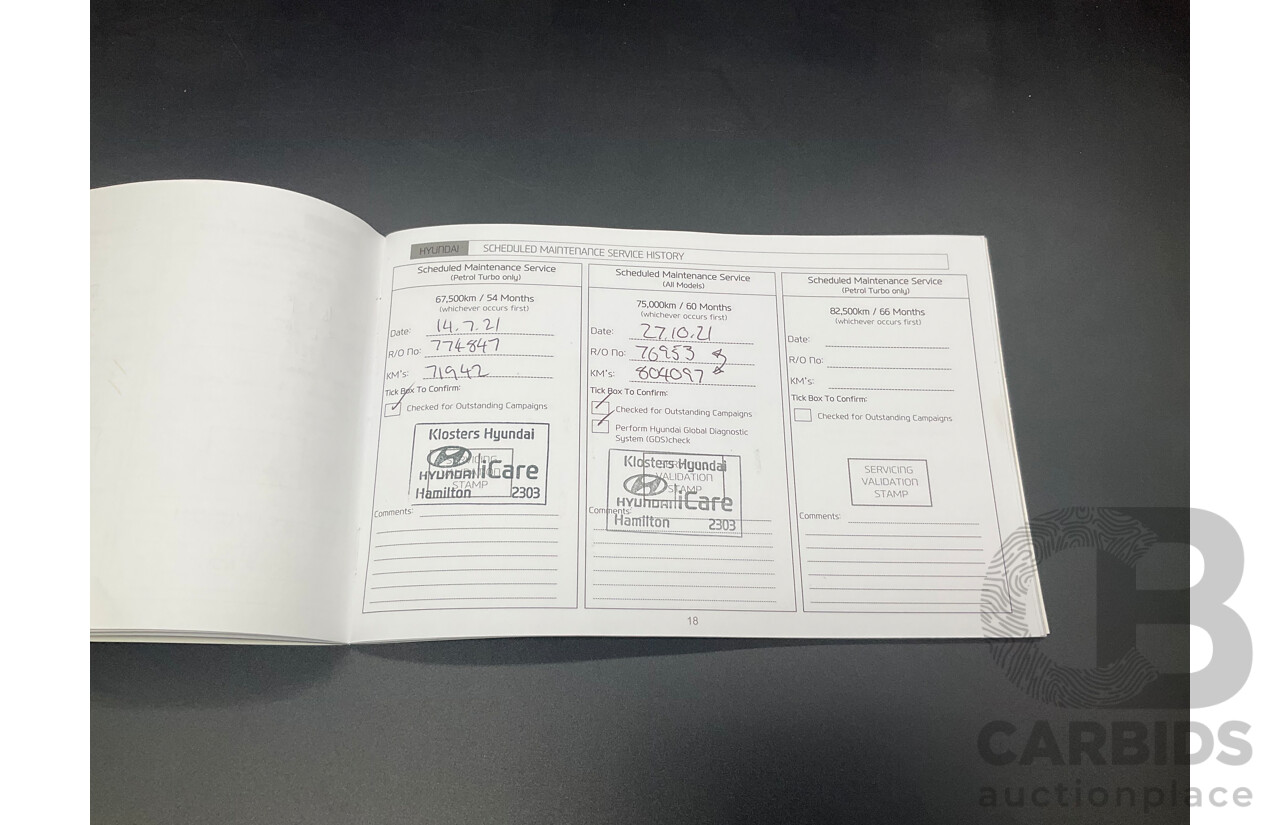 HYUNDAI SCHEDULED MAINTENANCE SERVICE HISTORY
Scheduled Maintenance Service
(Petrol Turbo only)
67,500km / 54 Months
(whichever occurs first)
Date: 14.7.21
R/O No: 774847
KM's: 71942
Tick Box To Confirm:
Checked for Outstanding Campaigns
Klosters Hyundai
SERVICING
VALIDATION
STAMP
HYUNDAI iCare
Hamilton 2303
Comments:
Scheduled Maintenance Service
(All Models)
75,000km / 60 Months
(whichever occurs first)
Date: 27.10.21
R/O No: 76953
KM's: 804097
Tick Box To Confirm:
Checked for Outstanding Campaigns
Perform Hyundai Global Diagnostic
System (GDS)check
Klosters Hyundai
VALIDATION
STAMP
HYUNDAI iCare
Comments:
Hamilton 2303
Scheduled Maintenance Service
(Petrol Turbo only)
82,500km / 66 Months
(whichever occurs first)
Date:
R/O No:
KM's:
Tick Box To Confirm:
Checked for Outstanding Campaigns
SERVICING
VALIDATION
STAMP
Comments:
18
CB
CARBIDS
auctionplace